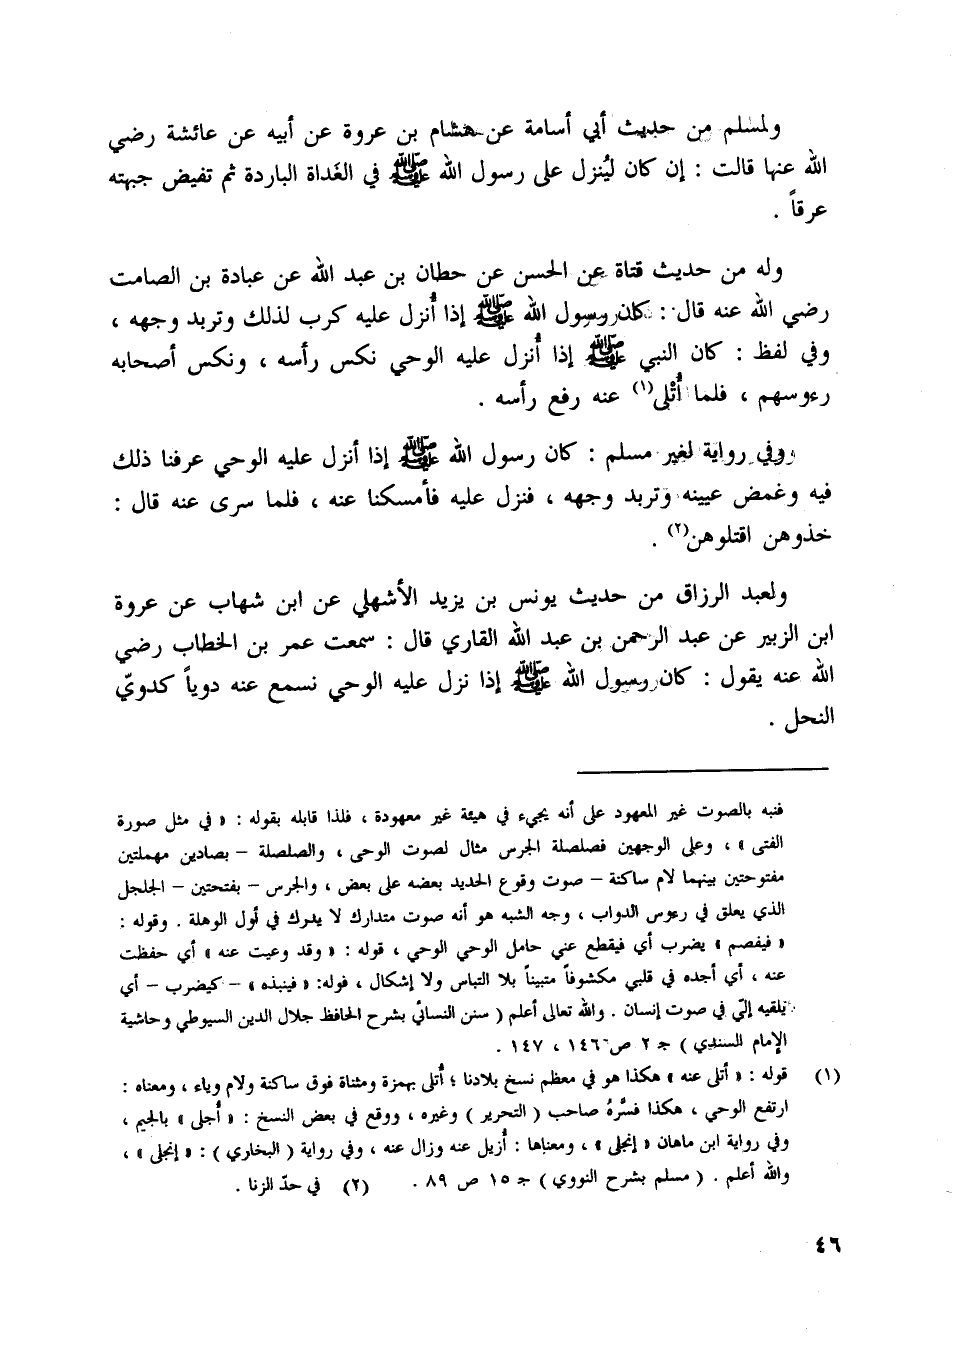 ولمسلم من حديث أبي أسامة عن هشام بن عروة عن أبيه عن عائشة رضي
الله عنها قالت : إن كان ليُنزل على رسول الله ﷺ في الغَداة الباردة ثم تفيض جبهته
عرقاً .
وله من حديث قتاة عن الحسن عن حطان بن عبد الله عن عبادة بن الصامت
رضي الله عنه قال : كان رسول الله ﷺ إذا أُنزل عليه كرب لذلك وتربد وجهه ،
وفي لفظ : كان النبي ﷺ إذا أُنزل عليه الوحي نكس رأسه ، ونكس أصحابه
رءوسهم ، فلما أُتْلى(١) عنه رفع رأسه .
وفي رواية لغير مسلم : كان رسول الله ﷺ إذا أنزل عليه الوحي عرفنا ذلك
فيه وغمض عيينه وتربد وجهه ، فنزل عليه فأمسكنا عنه ، فلما سرى عنه قال :
خذوهن اقتلوهن(٢) .
ولعبد الرزاق من حديث يونس بن يزيد الأشهلي عن ابن شهاب عن عروة
ابن الزبير عن عبد الرحمن بن عبد الله القاري قال : سمعت عمر بن الخطاب رضي
الله عنه يقول : كان رسول الله ﷺ إذا نزل عليه الوحي نسمع عنه دوياً كدويّ
النحل .
فنبه بالصوت غير المعهود على أنه يجيء في هيئة غير معهودة ، فلذا قابله بقوله : « في مثل صورة
الفتى » ، وعلى الوجهين فصلصلة الجرس مثال لصوت الوحى ، والصلصلة – بصادين مهملتين
مفتوحتين بينهما لام ساكنة – صوت وقوع الحديد بعضه على بعض ، والجرس – بفتحتين – الجلجل
الذي يعلق في رءوس الدواب ، وجه الشبه هو أنه صوت متدارك لا يدرك في أول الوهلة . وقوله :
« فيفصم » يضرب أي فيقطع عني حامل الوحي الوحي ، قوله : « وقد وعيت عنه » أي حفظت
عنه ، أي أجده في قلبي مكشوفاً متبيناً بلا التباس ولا إشكال ، قوله: « فينبذه » – كيضرب – أي
يلقيه إليّ في صوت إنسان . والله تعالى أعلم ( سنن النسائي بشرح الحافظ جلال الدين السيوطي وحاشية
الإمام السندي ) جـ ٢ ص ١٤٦ ، ١٤٧ .
(١) قوله : « أتلى عنه » هكذا هو في معظم نسخ بلادنا ؛ أُتلى بهمزة ومثناة فوق ساكنة ولام وياء ، ومعناه :
ارتفع الوحي ، هكذا فسَّرهُ صاحب ( التحرير ) وغيره ، ووقع في بعض النسخ : « أُجلى » بالجيم ،
وفي رواية ابن ماهان « إنجلى » ، ومعناها : أُزيل عنه وزال عنه ، وفي رواية ( البخاري ) : « إنجلى » ،
والله أعلم . ( مسلم بشرح النووي ) جـ ١٥ ص ٨٩ . (٢) في حدّ الزنا .
٤٦